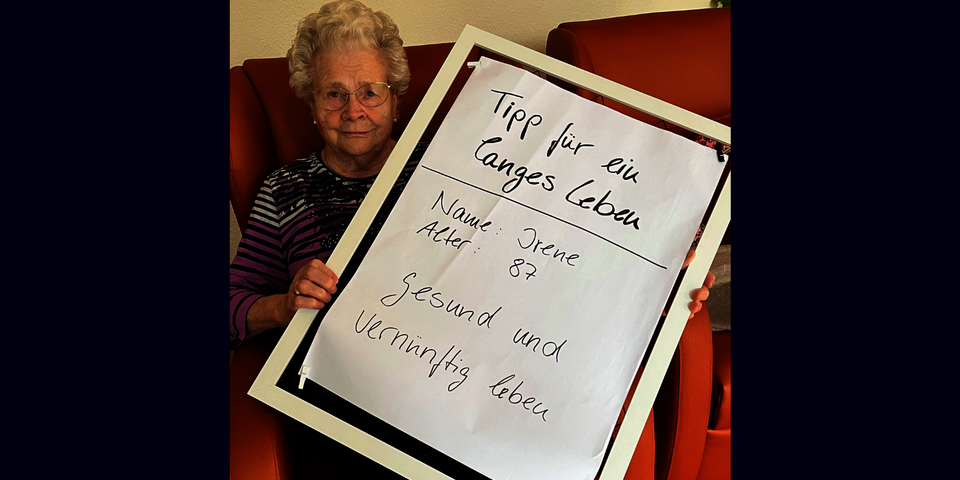 Tipp für ein
langes Leben
Name: Irene
Alter: 87
Gesund und
vernünftig leben